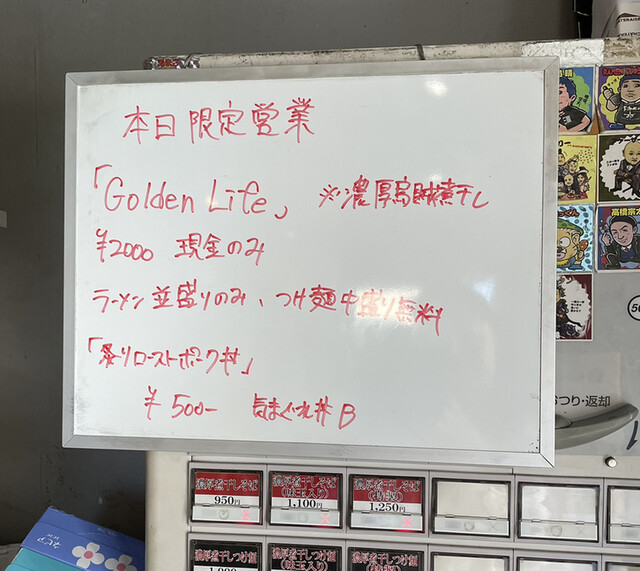 本日限定営業
「Golden Life」 ※濃厚烏賊煮干し
¥2000 現金のみ
ラーメン並盛りのみ、つけ麺中盛り無料
「炙りローストポーク丼」
¥500- 気まぐれ丼B
おつり・返却
高橋宗
濃厚煮干しそば
950円
濃厚煮干しそば
(味玉入り)
1,100円
濃厚煮干しそば
(特製)
1,250円
濃厚煮干しつけ麺
濃厚煮干しつけ麺
(味玉入り)
濃厚煮干しつけ麺
(特製)